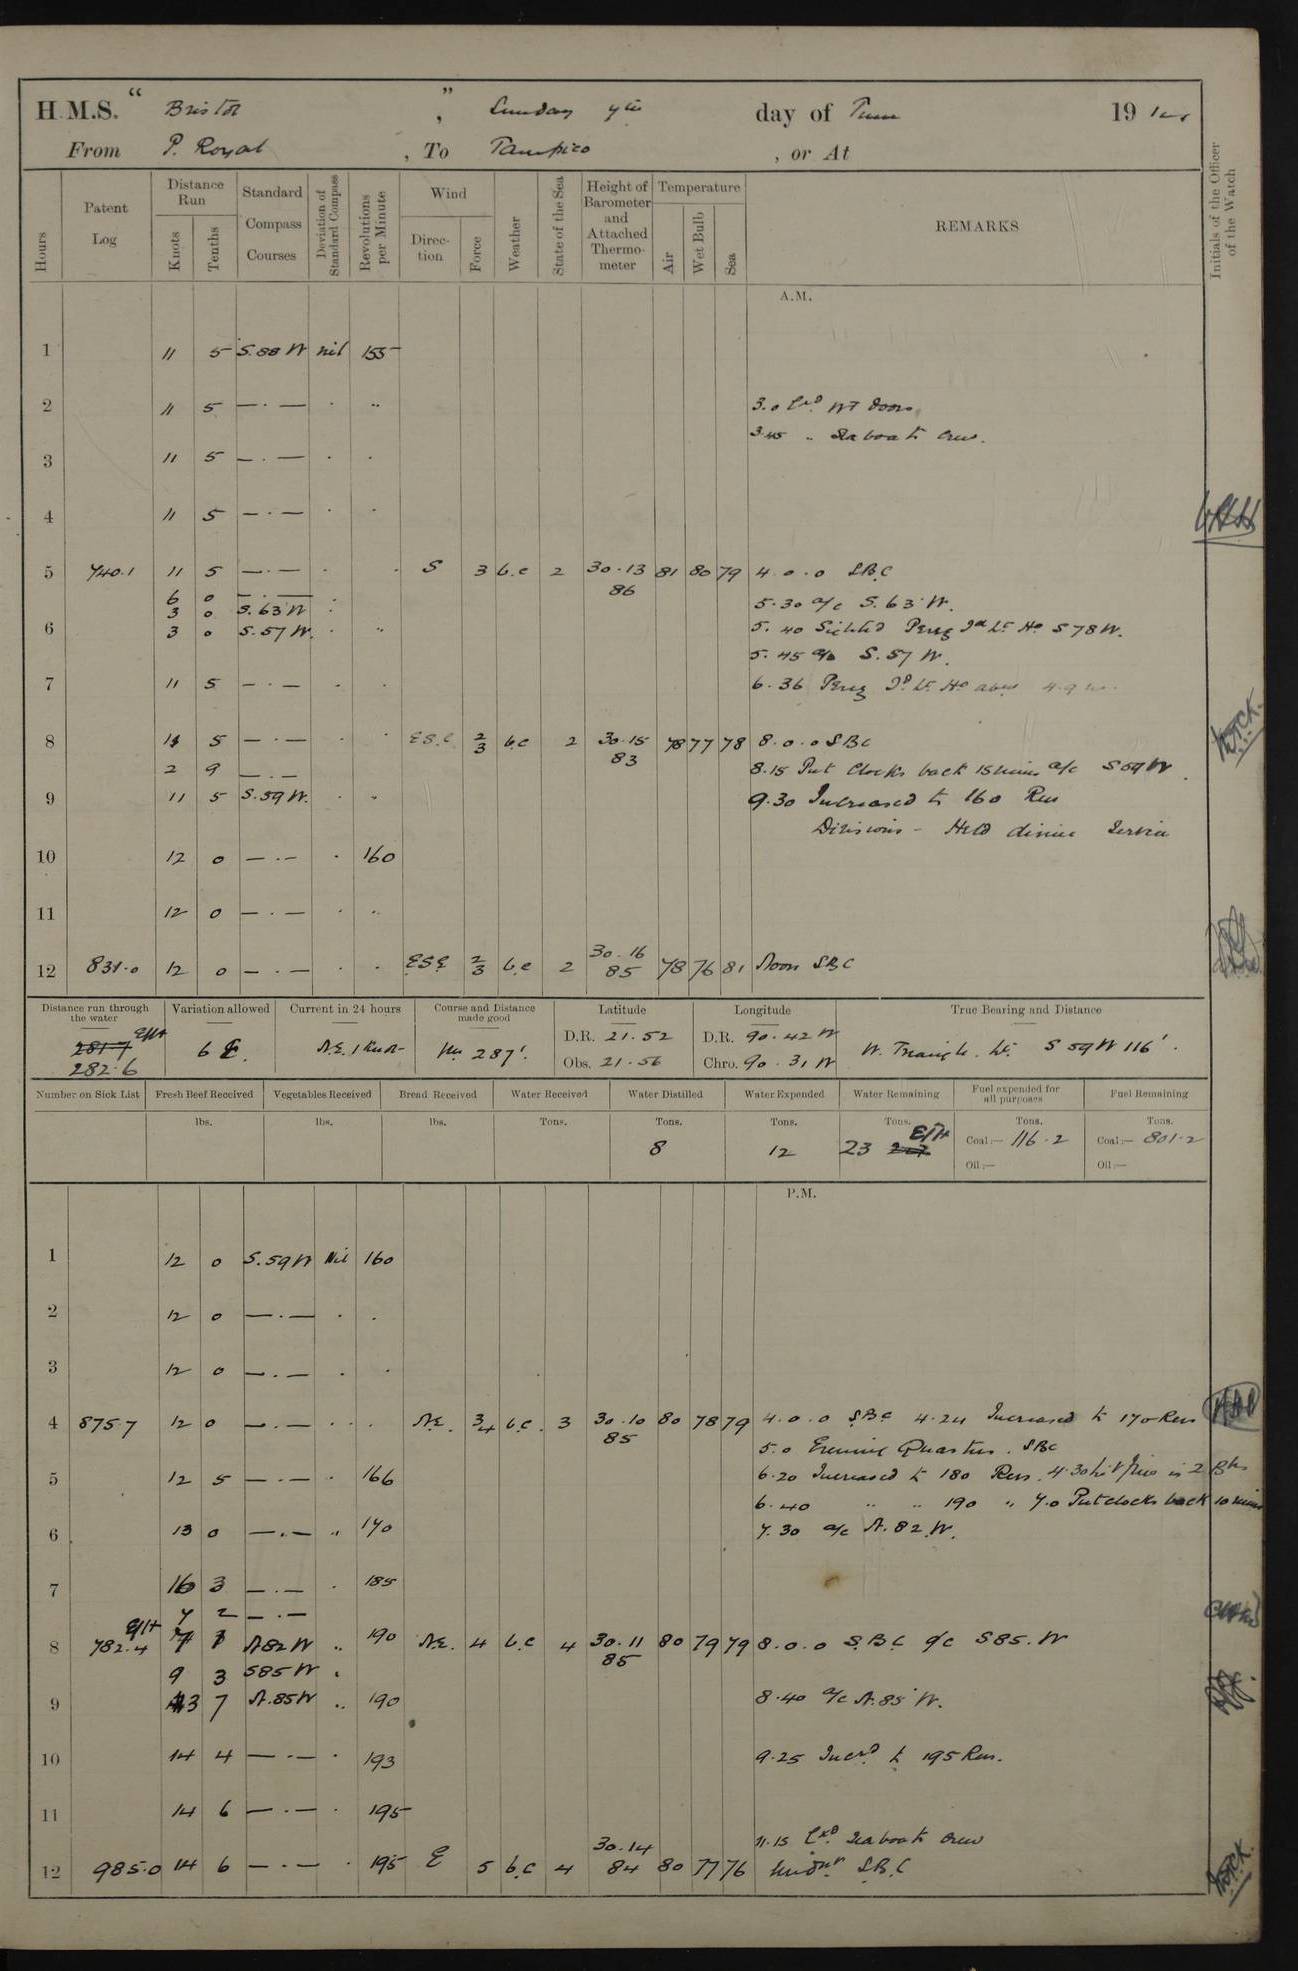 H.M.S. “ Bristol ” , Sunday 7th day of June 1914
From P. Royal , To Tampico , or At
Hours
Patent Log
Distance Run
Knots
Tenths
Standard Compass Courses
Deviation of Standard Compass
Revolutions per Minute
Wind
Direction
Force
Weather
State of the Sea
Height of Barometer and Attached Thermometer
Temperature
Air
Wet Bulb
Sea
REMARKS
Initials of the Officer of the Watch
A.M.
1 11 5 S.88 W nil 155
2 11 5 — . — . "
3.0 Cxd WT doors
3.45 " Seaboats Crew.
3 11 5 — . — . .
4 11 5 — . — . .
5 740.1 11 5 — . — . . S 3 b.c 2 30.13 81 80 79 4.0.0 S.B.C
86
6 0 — . — .
5.30 a/c S.63 W.
3 0 S.63 W .
6 3 0 S.57 W. . "
5.40 Sighted Perez Id Lt Ho S 78 W.
5.45 a/c S.57 W.
7 11 5 — . — . .
6.36 Perez Id Lt Ho abm 4.9
8 11 5 — . — . . E S.E 2/3 b.c 2 30.15 78 77 78 8.0.0 S B C
83
2 9 — . —
8.15 Put clocks back 15 mins a/c S 59 W.
9 11 5 S.59 W. . "
9.30 Increased to 160 Revs
Divisions - Held divine Service
10 12 0 — . — . 160
11 12 0 — . — . "
12 831.0 12 0 — . — . . ESE 2/3 b.c 2 30.16 78 76 81 Noon S.B.C
85
Distance run through the water
Variation allowed
Current in 24 hours
Course and Distance made good
Latitude
Longitude
True Bearing and Distance
281.7
282.6
6 E.
N.E. 1 Knot
287'.
D.R. 21.52
Obs. 21.56
D.R. 90.42 W
Chro. 90.31 W
W. Triangle. Lt. S 59 W 116'.
Number on Sick List
Fresh Beef Received
Vegetables Received
Bread Received
Water Received
Water Distilled
Water Expended
Water Remaining
Fuel expended for all purposes
Fuel Remaining
lbs. lbs. lbs. Tons. Tons. Tons. Tons. Tons. Tons.
8 12 23
Coal:— 116.2
Oil:—
Coal:— 801.2
Oil:—
P.M.
1 12 0 S.59 W Nil 160
2 12 0 — . — . .
3 12 0 — . — . .
4 875.7 12 0 — . — . . N.E. 3/4 b.c. 3 30.10 80 78 79 4.0.0 S.B.C 4.24 Increased to 170 Revs
85
5.0 Evening Quarters. S.B.C
5 12 5 — . — . 166
6.20 Increased to 180 Revs. 4.30 lit fires in 2 Blrs
6.40 " " 190 " 7.0 Put clocks back 10 mins
6 13 0 — . — " 170
7.30 a/c N.82.W.
7 16 3 — . — . 185
7 2 — . —
8 782.4 7 1 N.82 W " 190 N.E. 4 b.c 4 30.11 80 79 79 8.0.0 S.B.C a/c S 85. W
85
9 3 S85 W "
9 3 7 N.85 W " 190
8.40 a/c N.85 W.
10 14 4 — . — . 193
9.25 Incrd to 195 Revs.
11 14 6 — . — . 195
11.15 Cxd Seaboats crew
12 985.0 14 6 — . — . 195 E 5 b.c 4 30.14 80 77 76 Midnt S.B.C
84